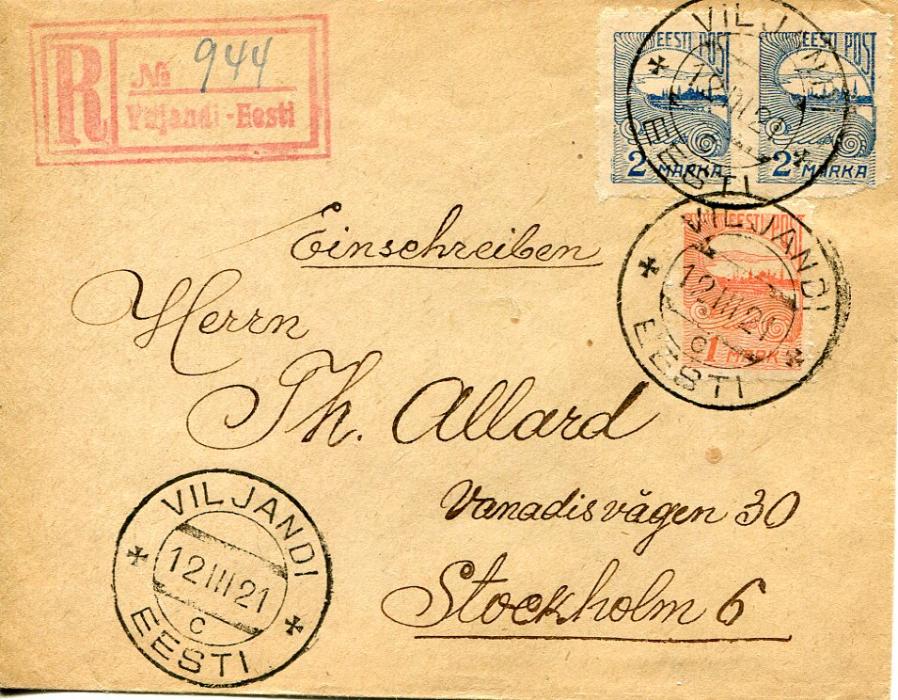 R
№ 944
Viljandi - Eesti
EESTI POST
2 MARKA
EESTI POST
2 MARKA
VILJANDI
EESTI
EESTI POST
1 MARK
VILJANDI
12 III 21
C
EESTI
Einschreiben
Herrn
Th. Allard
Vanadisvägen 30
Stockholm 6
VILJANDI
12 III 21
C
EESTI